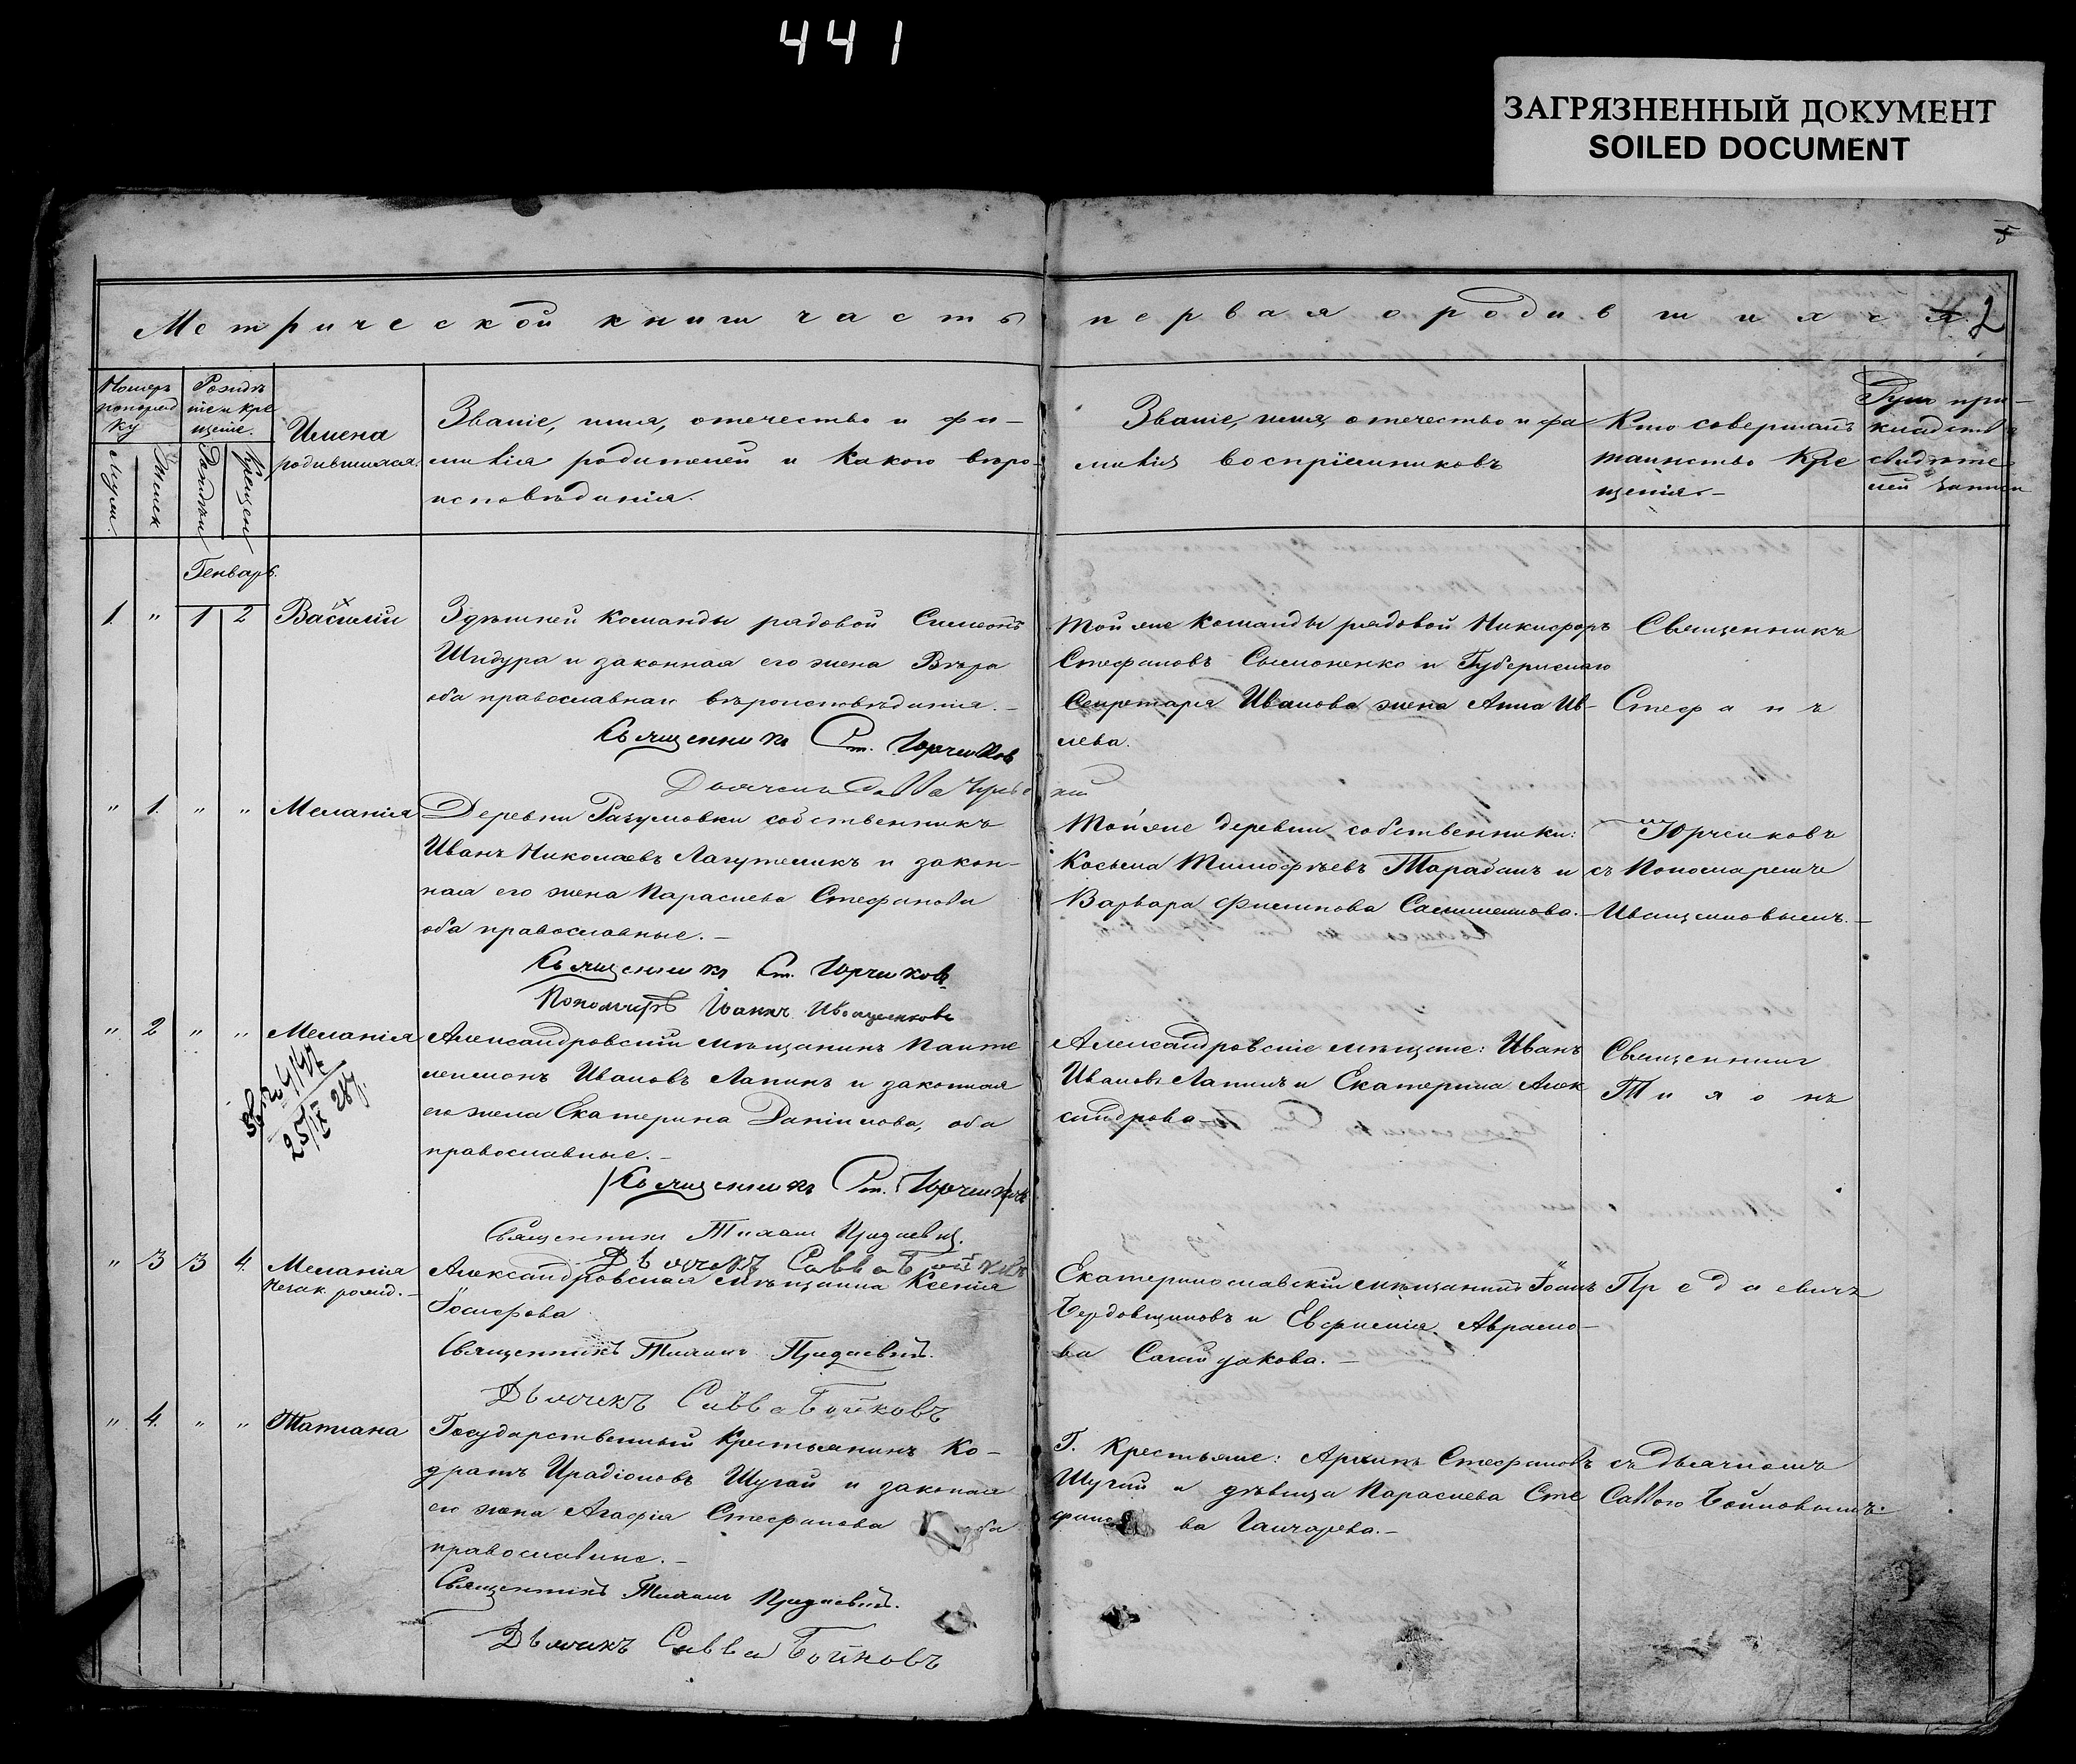 441
ЗАГРЯЗНЕННЫЙ ДОКУМЕНТ
SOILED DOCUMENT
5
Метрической книги часть первая о родившихся 2
Номеръ
по поряд
ку
Муж.
Женск
Рожде
ніе и кре
щеніе.
Рожден
Крещен
Имена
родившихся.
Званіе, имя, отечество и фа-
милія родителей и какого вѣро-
исповѣданія.
Званіе, имя, отечество и фа
милія воспріемниковъ
Кто совершалъ
таинство кре
щенія.-
Руко при-
кладство
свидѣте
лей записи
Генварь.
1. " 1 2 Василій
Здѣшней команды рядовой Симеонъ
Шидура и законная его жена Вѣра
оба православнаго вѣроисповѣданія.-
Священникъ Ст. Юрчиков
Дьячекъ Савва
Той же команды рядовой Никифоръ
Стефановъ Сымоненко и Губернскаго
Секретаря Иванова жена Анна
лева.
Священникъ
Стефанъ
" 1. " " Меланія
Деревни Разумовки собственникъ
Иванъ Николаевъ Лагутеникъ и закон-
ная его жена Параскева Стефанова
оба православные.-
Священникъ Ст. Юрчиковъ
Пономарь Іоаннъ Иващенковъ
Той же деревни собственники:
Косьма Тимофѣевъ Тарабанъ и
Варвара Филипова
Юрчиковъ
съ Пономаремъ
Иващенковымъ.-
" 2 " " Меланія
25/IX
Александровскій мѣщанинъ Панте
леимонъ Ивановъ Лапинъ и законная
его жена Екатерина Даніилова, оба
православные.-
Священникъ Ст. Юрчиковъ
Священникъ Тихонъ Придаевич.
Дьячекъ Савва Бойковъ
Александровскіе мѣщане: Иванъ
Ивановъ Лапинъ и Екатерина Алек
сандрова-
Священникъ
Тихонъ
" 3 3 4. Меланія
незак. рожд.-
Александровская мѣщанка Ксенія
Іосифова
Священникъ Тихонъ Придаевич.
Дьячекъ Савва Бойковъ
Екатеринославскій мѣщанинъ Іоанъ
Бердовщиковъ и Евфимія Аврамо-
ва Сагайдакова.-
Придаевичъ
" 4. " " Татіана
Государственный крестьянинъ Ко-
дратъ Ирадіоновъ Шугай и законная
его жена Агафія Стефанова оба
православные.-
Священникъ Тихонъ Придаевич.
Дьячекъ Савва Бойковъ
Г. Крестьяне: Архипъ Стефановъ
Шугай и дѣвица Параскева Сте
фано ва Ганчарева.-
съ Дьячкомъ
Саввою Бойковымъ.